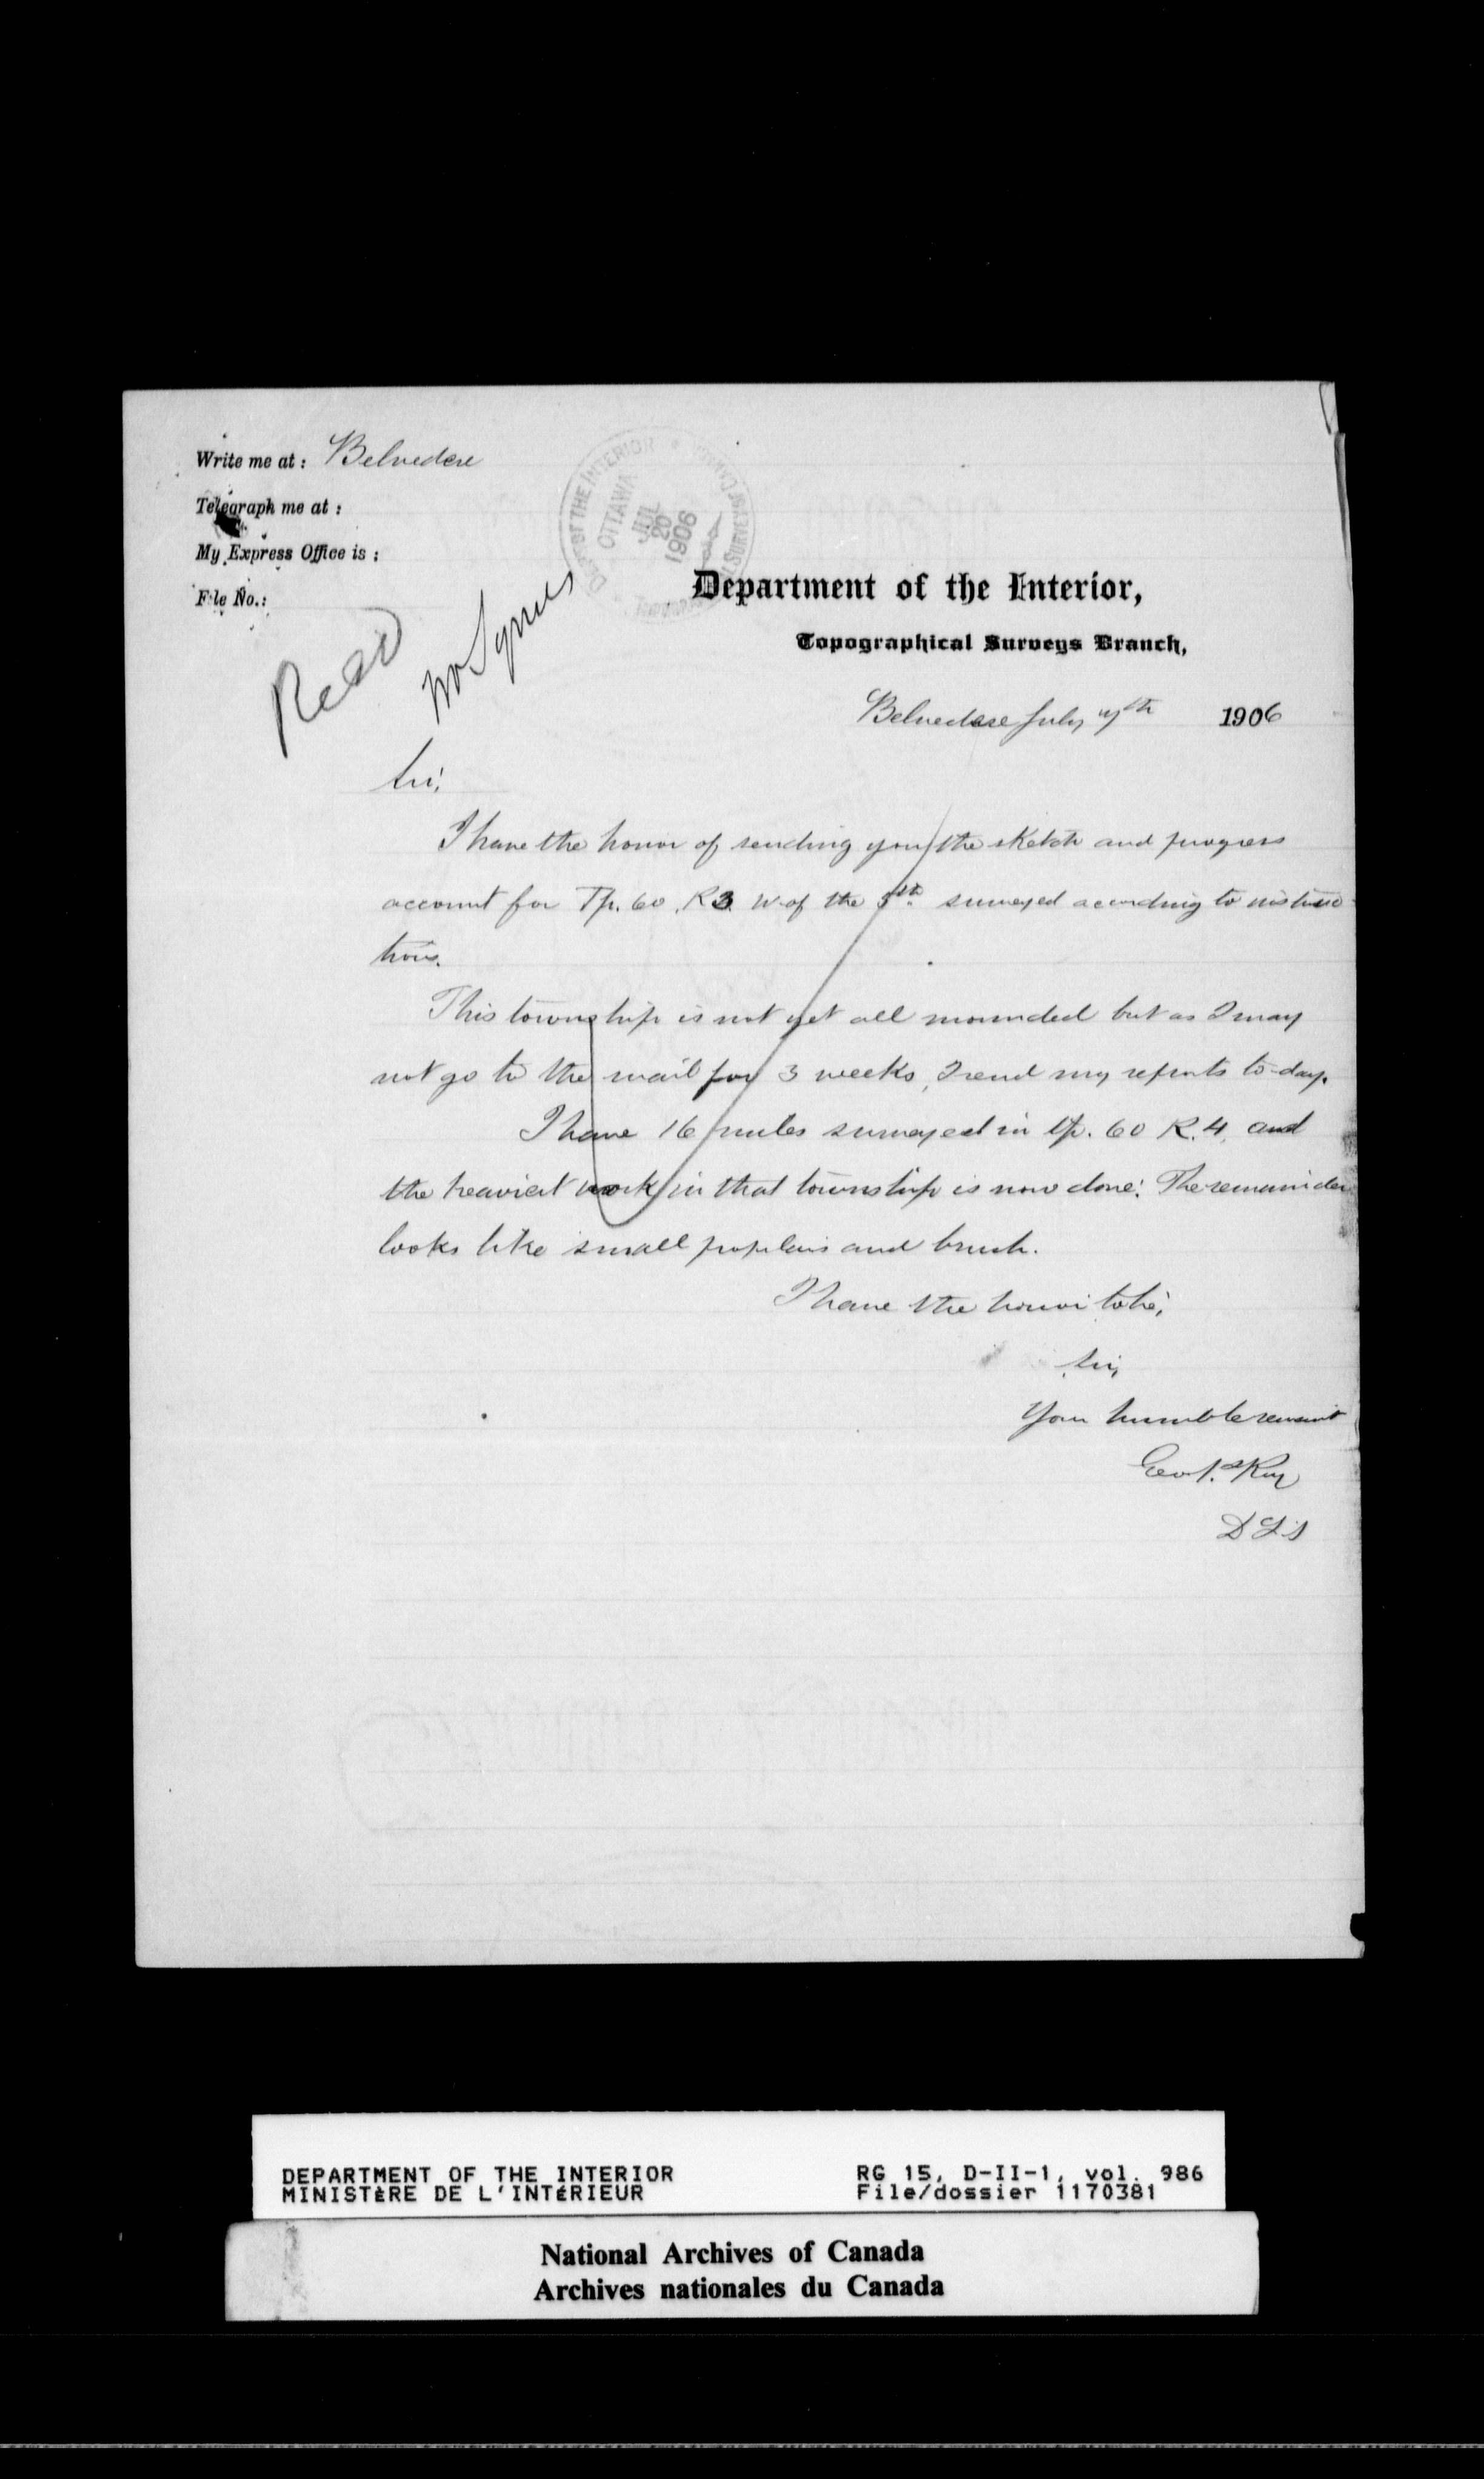 Write me at : Belvedere
Telegraph me at :
My Express Office is :
File No.:
DEPT OF THE INTERIOR
OTTAWA
JUL
20
1906
Read
Mr Symes
Department of the Interior,
Topographical Surveys Branch,
Belvedere July 1906
Sir,
I have the honor of sending you the sketch and progress
account for Tp. 60 . R 3. W. of the 5th surveyed according to instruc
tions.
This township is not yet all mounded but as I may
not go to the mail for 3 weeks, I send my reports to-day.
I have 16 miles surveyed in tp. 60 R. 4, and
the heaviest work in that township is now done. The remainder
looks like small poplars and brush.
I have the honor to be,
Sir,
Your humble servant
Geo. P. Roy
D L S
DEPARTMENT OF THE INTERIOR
MINISTÈRE DE L'INTÉRIEUR
RG 15, D-II-1, vol. 986
File/dossier 1170381
National Archives of Canada
Archives nationales du Canada